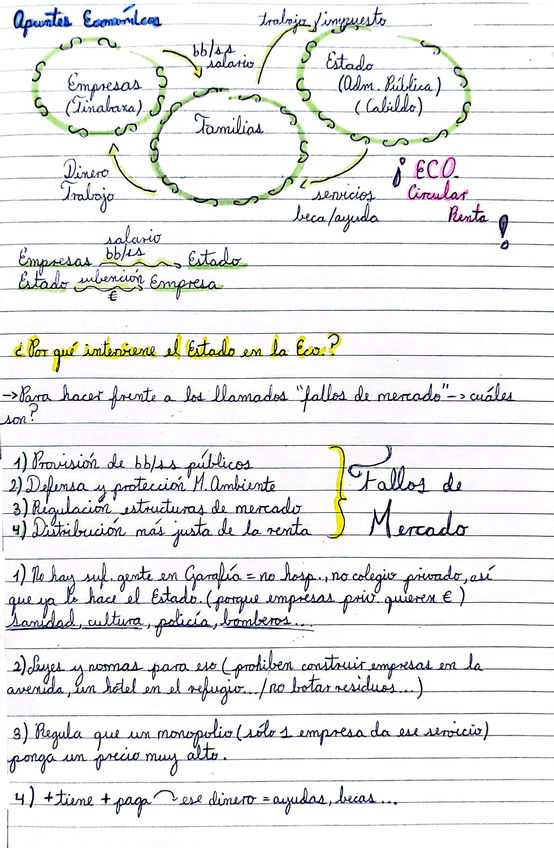 Apuntes Económicos
trabajo/impuesto
bb/ss
salario
Empresas
(Tinabana)
Estado
(Adm. Pública)
(Cabildo)
Familias
Dinero
Trabajo
servicios
beca/ayuda
¡ECO
Circular
Renta!
salario
Empresas bb/ss Estado
Estado subención Empresa
€
¿Por qué interviene el Estado en la Eco?
->Para hacer frente a los llamados "fallos de mercado"-> cuáles
son?
1) Provisión de bb/ss públicos
2) Defensa y protección M.Ambiente
3) Regulación estructuras de mercado
4) Distribución más justa de la renta
Fallos de
Mercado
1) No hay suf. gente en Garafía = no hosp., no colegio privado, así
que ya lo hace el Estado. (porque empresas priv. quieren €)
sanidad, cultura, policía, bomberos...
2) Leyes y normas para eso (prohiben construir empresas en la
avenida, un hotel en el refugio.../no botar residuos...)
3) Regula que un monopolio (sólo 1 empresa da ese servicio)
ponga un precio muy alto.
4) + tiene + paga ese dinero = ayudas, becas...